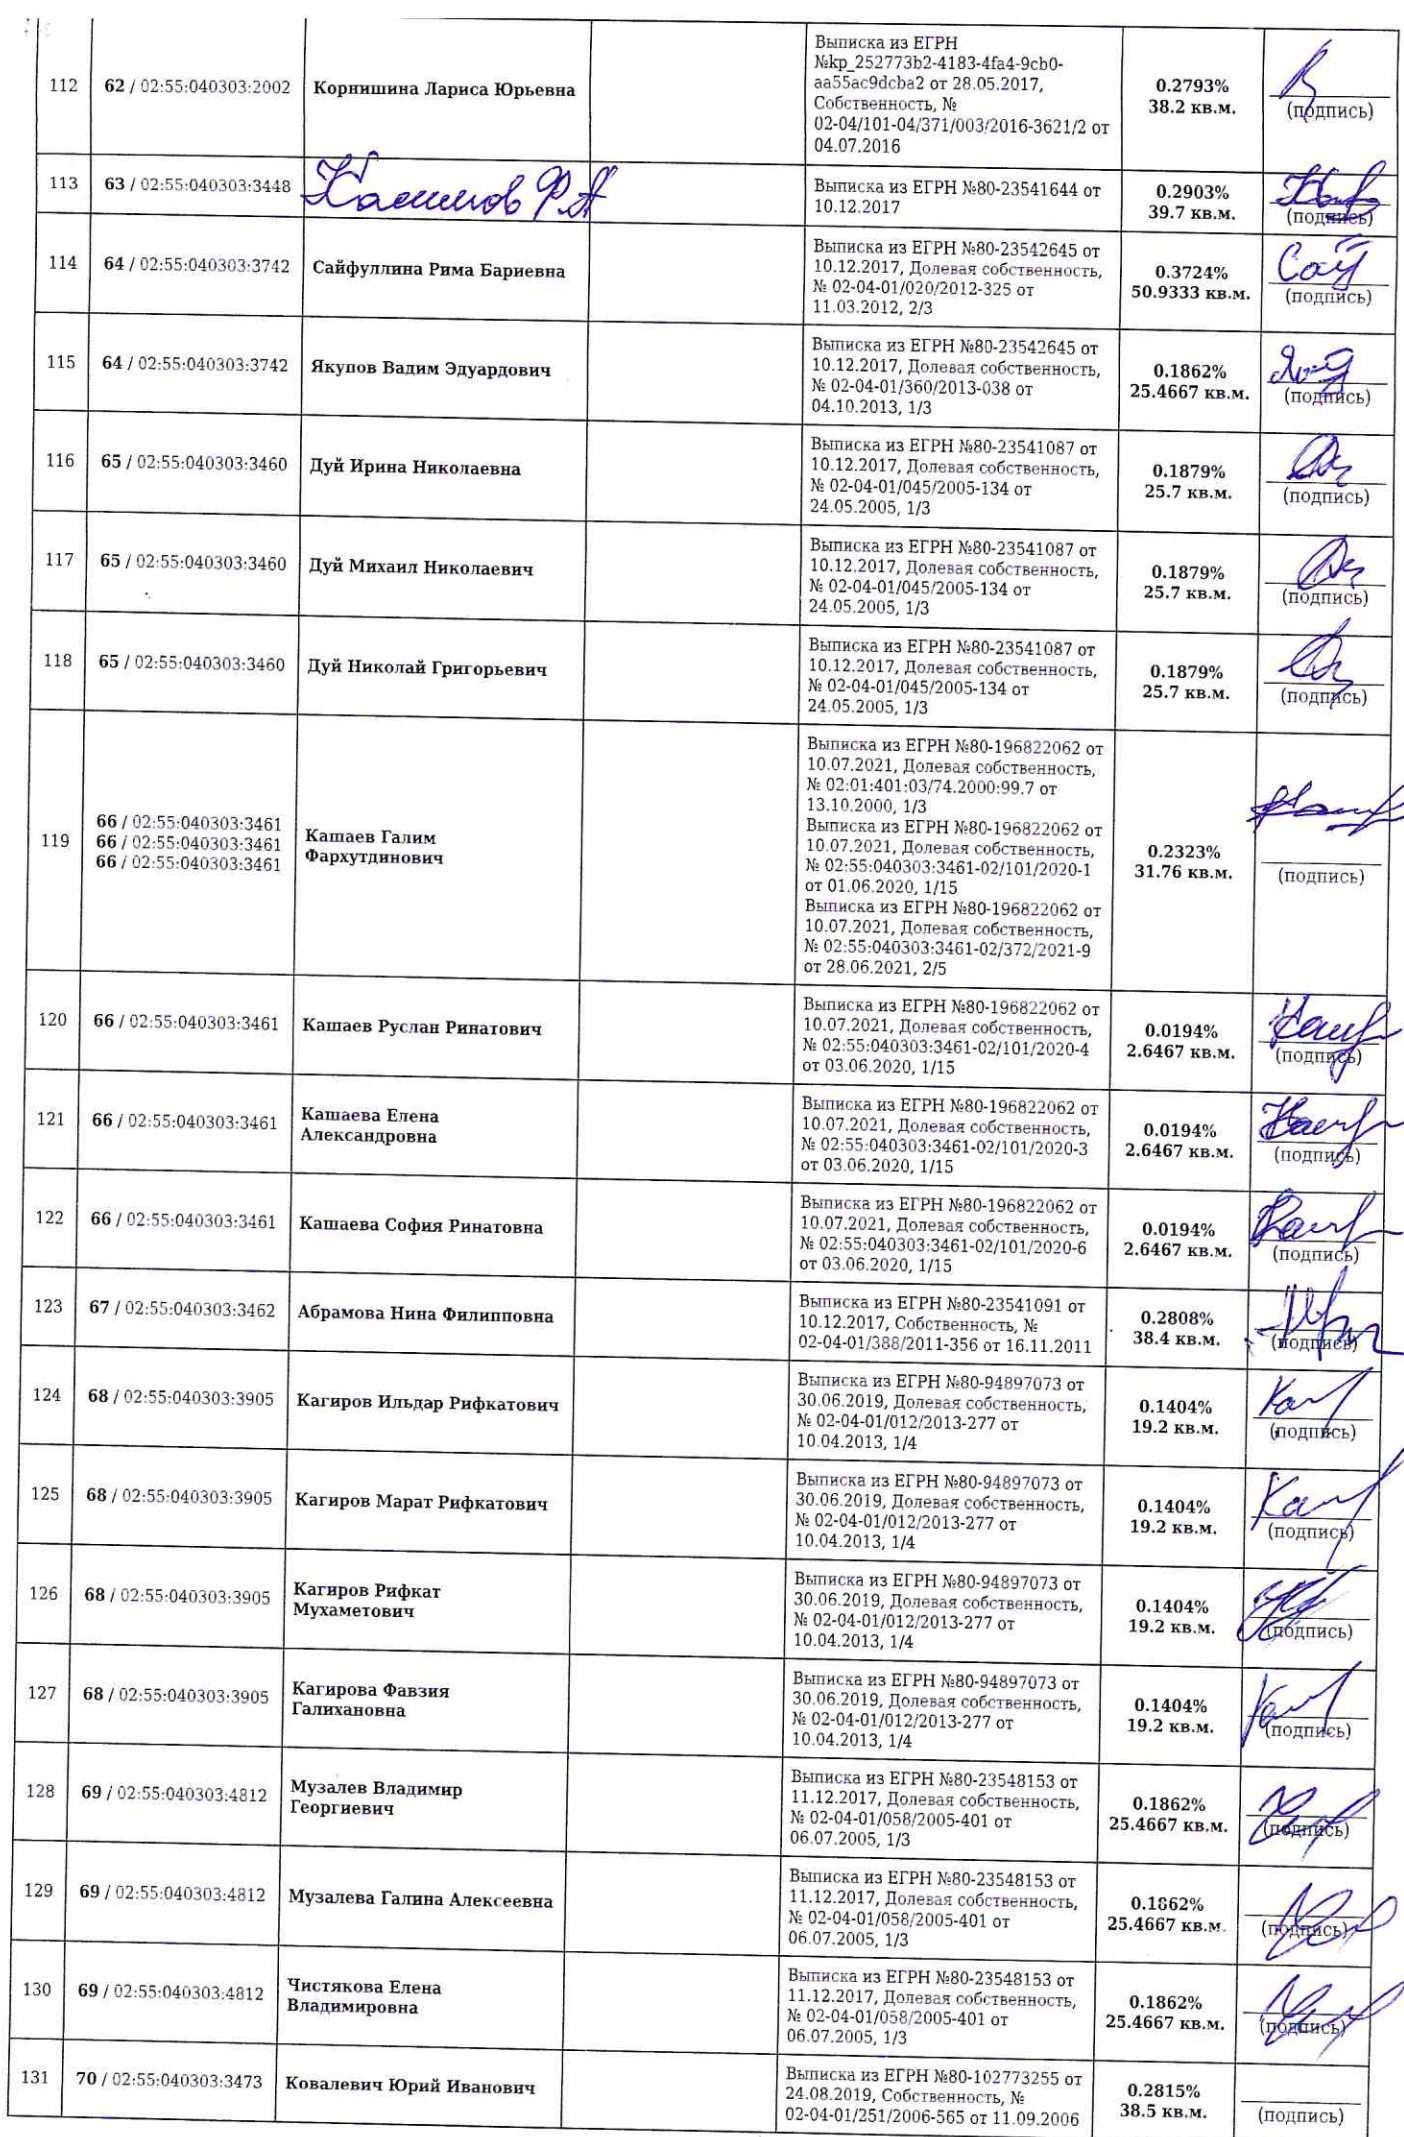 112
62 / 02:55:040303:2002
Корнишина Лариса Юрьевна
Выписка из ЕГРН
№kp_252773b2-4183-4fa4-9cb0-
aa55ac9dcba2 от 28.05.2017,
Собственность, №
02-04/101-04/371/003/2016-3621/2 от
04.07.2016
0.2793%
38.2 кв.м.
(подпись)
113
63 / 02:55:040303:3448
Касимов Р.А
Выписка из ЕГРН №80-23541644 от
10.12.2017
0.2903%
39.7 кв.м.
(подпись)
114
64 / 02:55:040303:3742
Сайфуллина Рима Бариевна
Выписка из ЕГРН №80-23542645 от
10.12.2017, Долевая собственность,
№ 02-04-01/020/2012-325 от
11.03.2012, 2/3
0.3724%
50.9333 кв.м.
(подпись)
115
64 / 02:55:040303:3742
Якупов Вадим Эдуардович
Выписка из ЕГРН №80-23542645 от
10.12.2017, Долевая собственность,
№ 02-04-01/360/2013-038 от
04.10.2013, 1/3
0.1862%
25.4667 кв.м.
(подпись)
116
65 / 02:55:040303:3460
Дуй Ирина Николаевна
Выписка из ЕГРН №80-23541087 от
10.12.2017, Долевая собственность,
№ 02-04-01/045/2005-134 от
24.05.2005, 1/3
0.1879%
25.7 кв.м.
(подпись)
117
65 / 02:55:040303:3460
Дуй Михаил Николаевич
Выписка из ЕГРН №80-23541087 от
10.12.2017, Долевая собственность,
№ 02-04-01/045/2005-134 от
24.05.2005, 1/3
0.1879%
25.7 кв.м.
(подпись)
118
65 / 02:55:040303:3460
Дуй Николай Григорьевич
Выписка из ЕГРН №80-23541087 от
10.12.2017, Долевая собственность,
№ 02-04-01/045/2005-134 от
24.05.2005, 1/3
0.1879%
25.7 кв.м.
(подпись)
119
66 / 02:55:040303:3461
66 / 02:55:040303:3461
66 / 02:55:040303:3461
Кашаев Галим
Фархутдинович
Выписка из ЕГРН №80-196822062 от
10.07.2021, Долевая собственность,
№ 02:01:401:03/74.2000:99.7 от
13.10.2000, 1/3
Выписка из ЕГРН №80-196822062 от
10.07.2021, Долевая собственность,
№ 02:55:040303:3461-02/101/2020-1
от 01.06.2020, 1/15
Выписка из ЕГРН №80-196822062 от
10.07.2021, Долевая собственность,
№ 02:55:040303:3461-02/372/2021-9
от 28.06.2021, 2/5
0.2323%
31.76 кв.м.
(подпись)
120
66 / 02:55:040303:3461
Кашаев Руслан Ринатович
Выписка из ЕГРН №80-196822062 от
10.07.2021, Долевая собственность,
№ 02:55:040303:3461-02/101/2020-4
от 03.06.2020, 1/15
0.0194%
2.6467 кв.м.
(подпись)
121
66 / 02:55:040303:3461
Кашаева Елена
Александровна
Выписка из ЕГРН №80-196822062 от
10.07.2021, Долевая собственность,
№ 02:55:040303:3461-02/101/2020-3
от 03.06.2020, 1/15
0.0194%
2.6467 кв.м.
(подпись)
122
66 / 02:55:040303:3461
Кашаева София Ринатовна
Выписка из ЕГРН №80-196822062 от
10.07.2021, Долевая собственность,
№ 02:55:040303:3461-02/101/2020-6
от 03.06.2020, 1/15
0.0194%
2.6467 кв.м.
(подпись)
123
67 / 02:55:040303:3462
Абрамова Нина Филипповна
Выписка из ЕГРН №80-23541091 от
10.12.2017, Собственность, №
02-04-01/388/2011-356 от 16.11.2011
0.2808%
38.4 кв.м.
(подпись)
124
68 / 02:55:040303:3905
Кагиров Ильдар Рифкатович
Выписка из ЕГРН №80-94897073 от
30.06.2019, Долевая собственность,
№ 02-04-01/012/2013-277 от
10.04.2013, 1/4
0.1404%
19.2 кв.м.
(подпись)
125
68 / 02:55:040303:3905
Кагиров Марат Рифкатович
Выписка из ЕГРН №80-94897073 от
30.06.2019, Долевая собственность,
№ 02-04-01/012/2013-277 от
10.04.2013, 1/4
0.1404%
19.2 кв.м.
(подпись)
126
68 / 02:55:040303:3905
Кагиров Рифкат
Мухаметович
Выписка из ЕГРН №80-94897073 от
30.06.2019, Долевая собственность,
№ 02-04-01/012/2013-277 от
10.04.2013, 1/4
0.1404%
19.2 кв.м.
(подпись)
127
68 / 02:55:040303:3905
Кагирова Фавзия
Галихановна
Выписка из ЕГРН №80-94897073 от
30.06.2019, Долевая собственность,
№ 02-04-01/012/2013-277 от
10.04.2013, 1/4
0.1404%
19.2 кв.м.
(подпись)
128
69 / 02:55:040303:4812
Музалев Владимир
Георгиевич
Выписка из ЕГРН №80-23548153 от
11.12.2017, Долевая собственность,
№ 02-04-01/058/2005-401 от
06.07.2005, 1/3
0.1862%
25.4667 кв.м.
(подпись)
129
69 / 02:55:040303:4812
Музалева Галина Алексеевна
Выписка из ЕГРН №80-23548153 от
11.12.2017, Долевая собственность,
№ 02-04-01/058/2005-401 от
06.07.2005, 1/3
0.1862%
25.4667 кв.м.
(подпись)
130
69 / 02:55:040303:4812
Чистякова Елена
Владимировна
Выписка из ЕГРН №80-23548153 от
11.12.2017, Долевая собственность,
№ 02-04-01/058/2005-401 от
06.07.2005, 1/3
0.1862%
25.4667 кв.м.
(подпись)
131
70 / 02:55:040303:3473
Ковалевич Юрий Иванович
Выписка из ЕГРН №80-102773255 от
24.08.2019, Собственность, №
02-04-01/251/2006-565 от 11.09.2006
0.2815%
38.5 кв.м.
(подпись)